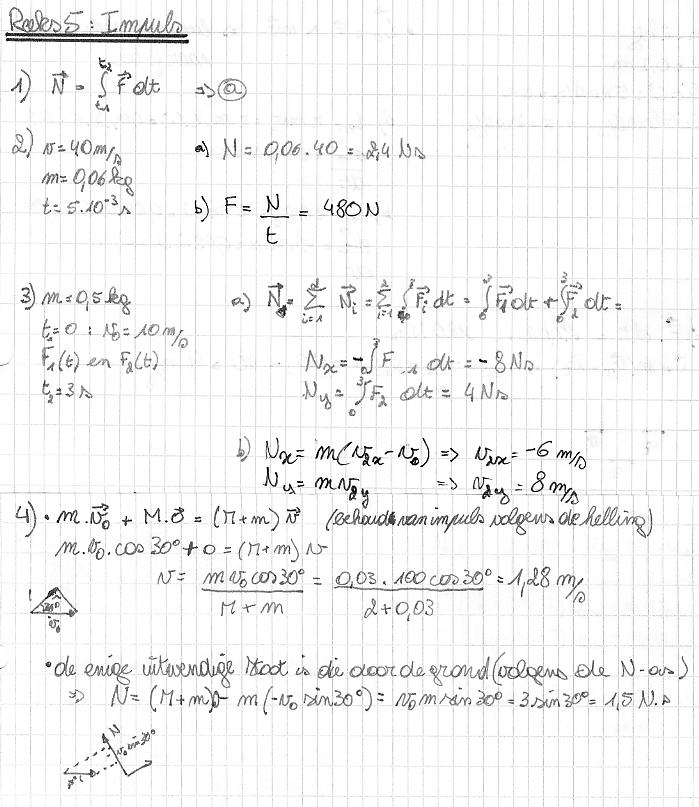 Reeks 5 : Impuls
1) N⃗ = ∫_{t1}^{t2} F⃗ dt => ⓐ
2) v = 40 m/s a) N = 0,06 . 40 = 2,4 Ns
m = 0,06 kg
t = 5.10⁻³ s b) F = N/t = 480 N
3) m = 0,5 kg a) N⃗ = Σ_{i=1}^{2} N⃗_i = Σ_{i=1}^{2} ∫_0^3 F⃗_i dt = ∫_0^3 F⃗_1 dt + ∫_0^3 F⃗_2 dt =
t₁ = 0 : v₀ = 10 m/s
F₁(t) en F₂(t) N_x = -∫_0^3 F_1 dt = -8 Ns
t₂ = 3 s N_y = ∫_0^3 F_2 dt = 4 Ns
b) N_x = m(v_{2x} - v_0) => v_{2x} = -6 m/s
N_y = m v_{2y} => v_{2y} = 8 m/s
4) • m.v⃗₀ + M.0⃗ = (M+m) v⃗ (behoud van impuls volgens de helling)
m.v₀.cos 30° + 0 = (M+m) v
v = (m v₀ cos 30°)/(M+m) = (0,03 . 100 cos 30°)/(2+0,03) = 1,28 m/s
30°
v₀
• de enige uitwendige stoot is die door de grond (volgens de N-as)
=> N = (M+m)0 - m(-v₀ sin 30°) = v₀ m sin 30° = 3 sin 30° = 1,5 N.s
N
v₀ sin 30°